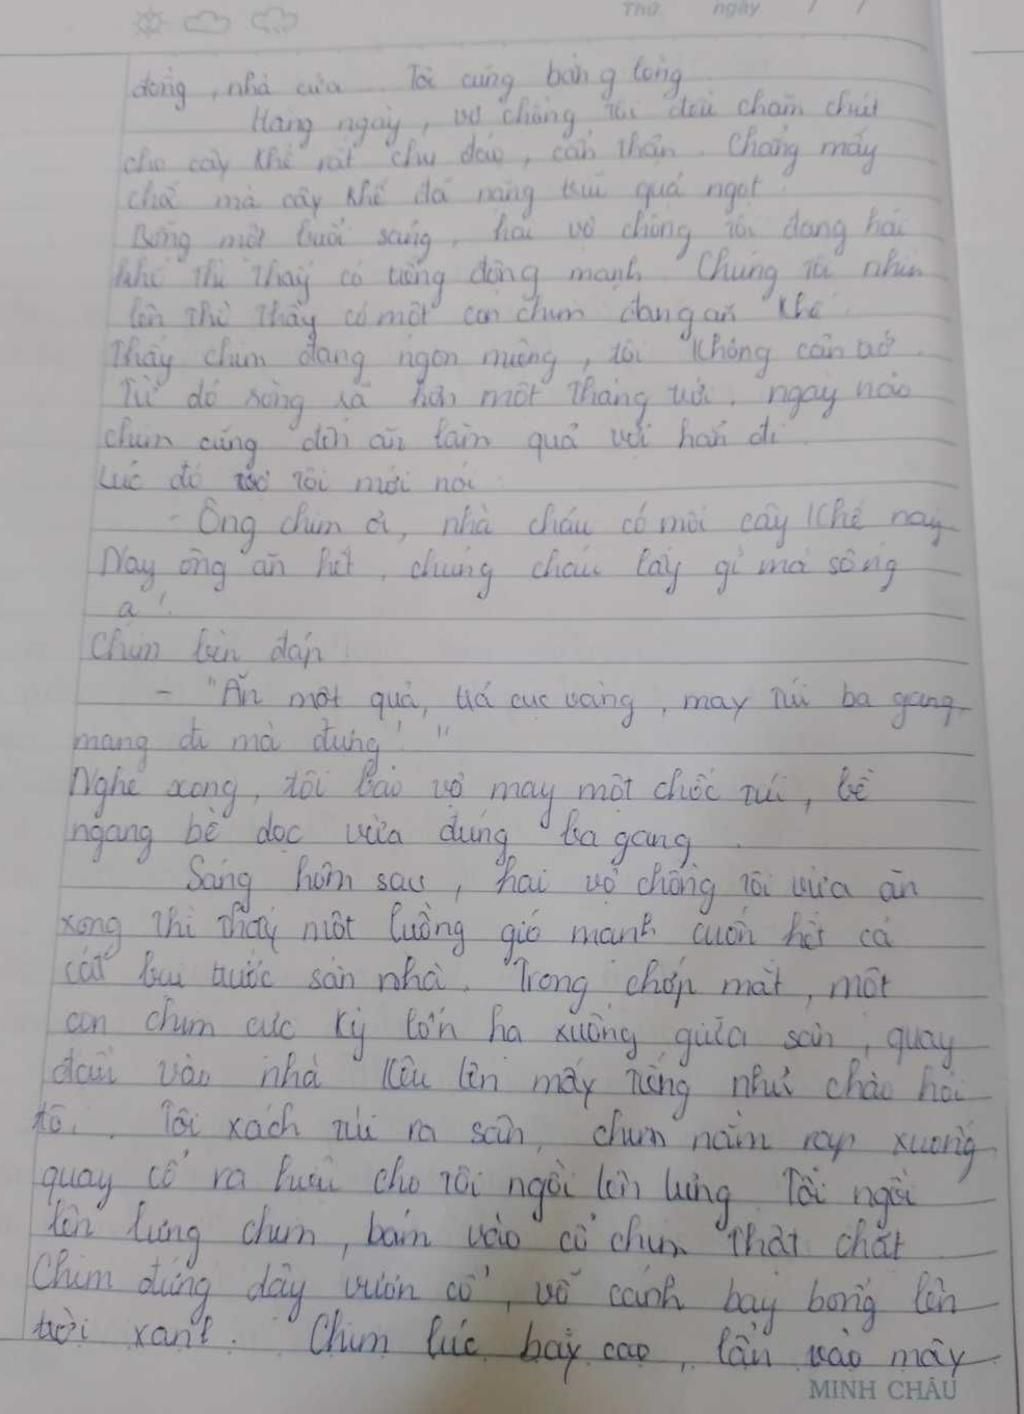 Thứ ngày / /
đồng, nhà cửa... Tôi cũng bằng lòng.
Hàng ngày, vợ chồng tôi đều chăm chút
cho cây khế rất chu đáo, cẩn thận. Chẳng mấy
chốc mà cây khế đã nặng trĩu quả ngọt.
Bỗng một buổi sáng, hai vợ chồng tôi đang hái
khế thì thấy có tiếng động mạnh. Chúng tôi nhìn
lên thì thấy có một con chim đang ăn khế.
Thấy chim đang ngon miệng, tôi không cản trở.
Từ đó ròng rã hơn một tháng trời, ngày nào
chim cũng đến ăn làm quả vơi hẳn đi.
Lúc đó tôi mới nói:
- Ông chim ơi, nhà cháu có mỗi cây khế này
Nay ông ăn hết, chúng cháu lấy gì mà sống
ạ!
Chim bèn đáp:
- "Ăn một quả, trả cục vàng, may túi ba gang,
mang đi mà đựng!"
Nghe xong, tôi bảo vợ may một chốc túi, bề
ngang bề dọc vừa đúng ba gang.
Sáng hôm sau, hai vợ chồng tôi vừa ăn
xong thì thấy một luồng gió mạnh cuốn hết cả
cát bụi trước sân nhà. Trong chớp mắt, một
con chim cực kỳ lớn hạ xuống giữa sân, quay
đầu vào nhà kêu lên mấy tiếng như chào hỏi
tôi. Tôi xách túi ra sân, chim nằm rạp xuống
quay cổ ra hiệu cho tôi ngồi lên lưng. Tôi ngồi
lên lưng chim, bám vào cổ chim thật chặt
Chim đứng dậy vươn cổ, vỗ cánh bay bổng lên
trời xanh. Chim lúc bay cao, lẩn vào mây
MINH CHÂU